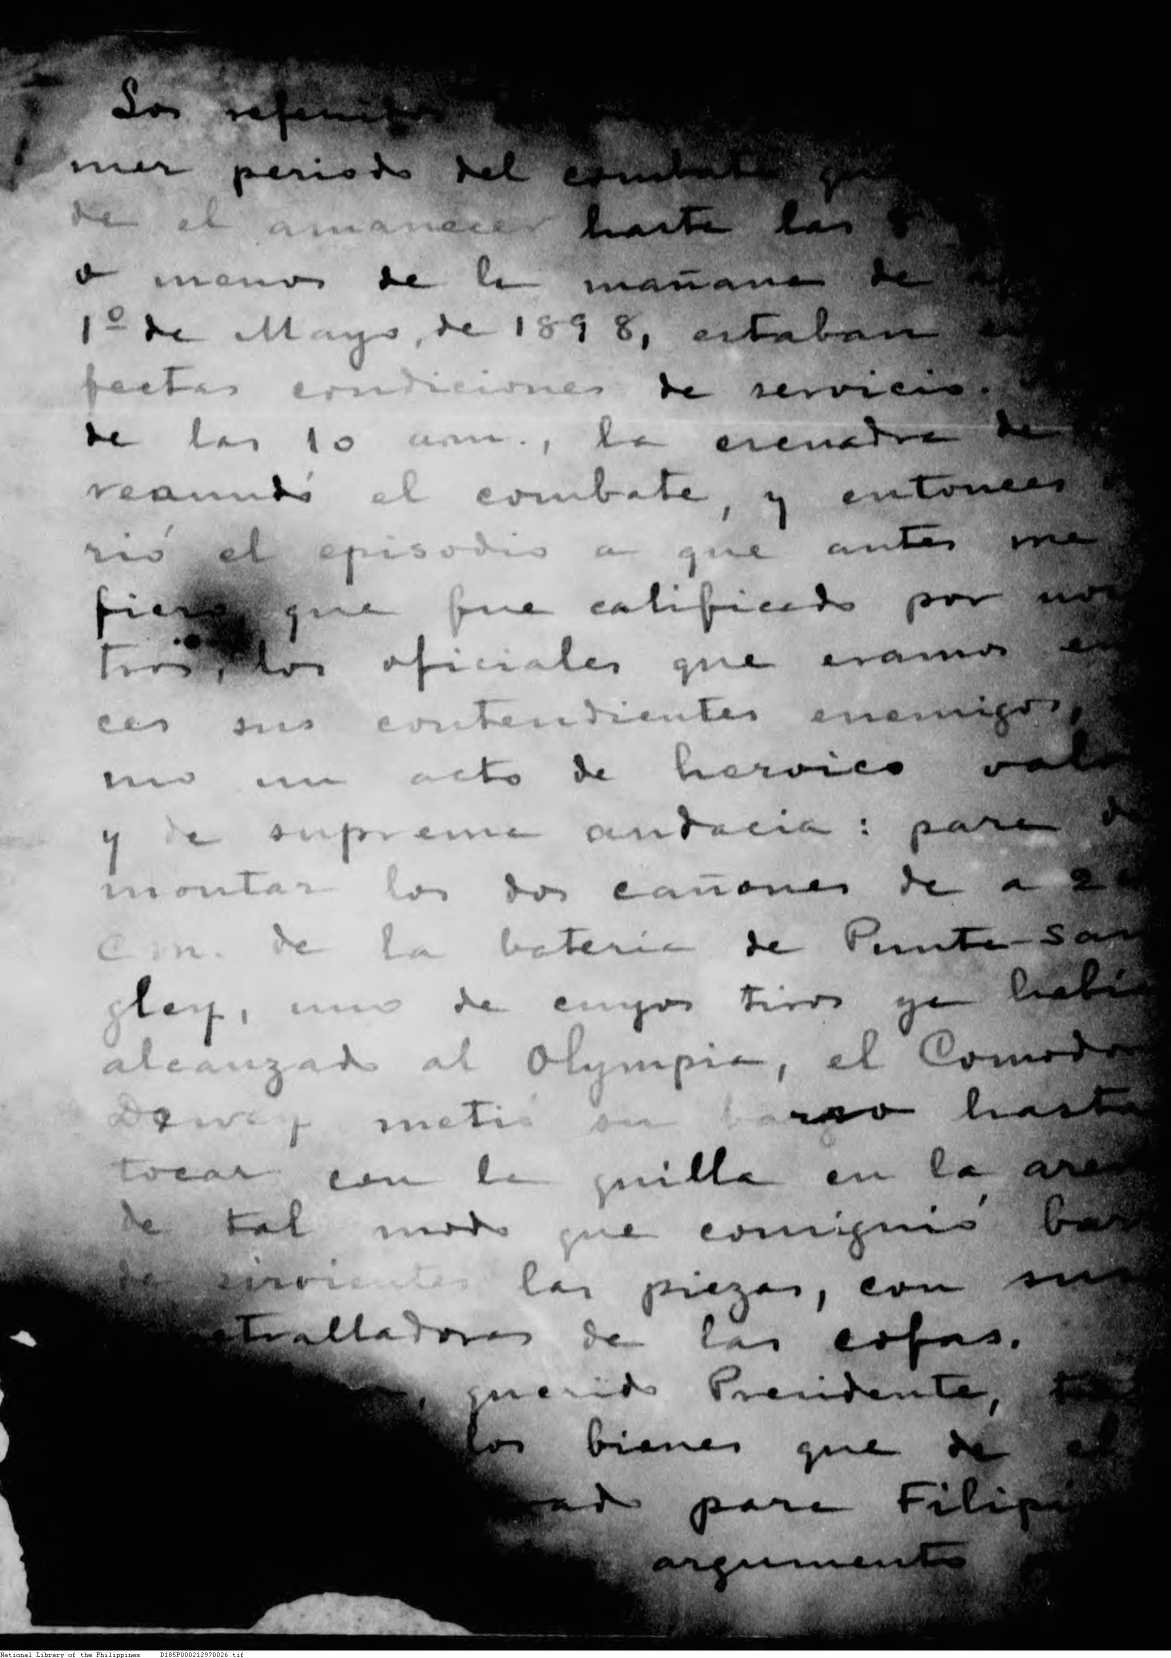 Los referidos
mer periodo del combate que
de el amanecer hasta las 8
o menos de la mañana de
1º de Mayo, de 1898, estaban en
fectas condiciones de servicio.
de las 10 a.m., la escuadra de
reanudó el combate, y entonces
rió el episodio a que antes me
fiero que fue calificado por nos
tros, los oficiales que eramos en
ces sus contendientes enemigos,
mo un acto de heroico valo
y de suprema audacia: para de
montar los dos cañones de a 20
Cm. de la bateria de Punta-San
gley, uno de cuyos tiros ya habia
alcanzado al Olympia, el Comodo
Dewey metió su barco hasta
tocar con la quilla en la are
de tal modo que consiguió bar
de sirvientes las piezas, con sus
etralladoras de las cofas.
, querido Presidente,
los bienes que de el
vado para Filipi
argumento
National Library of the Philippines D185P000212970026.tif